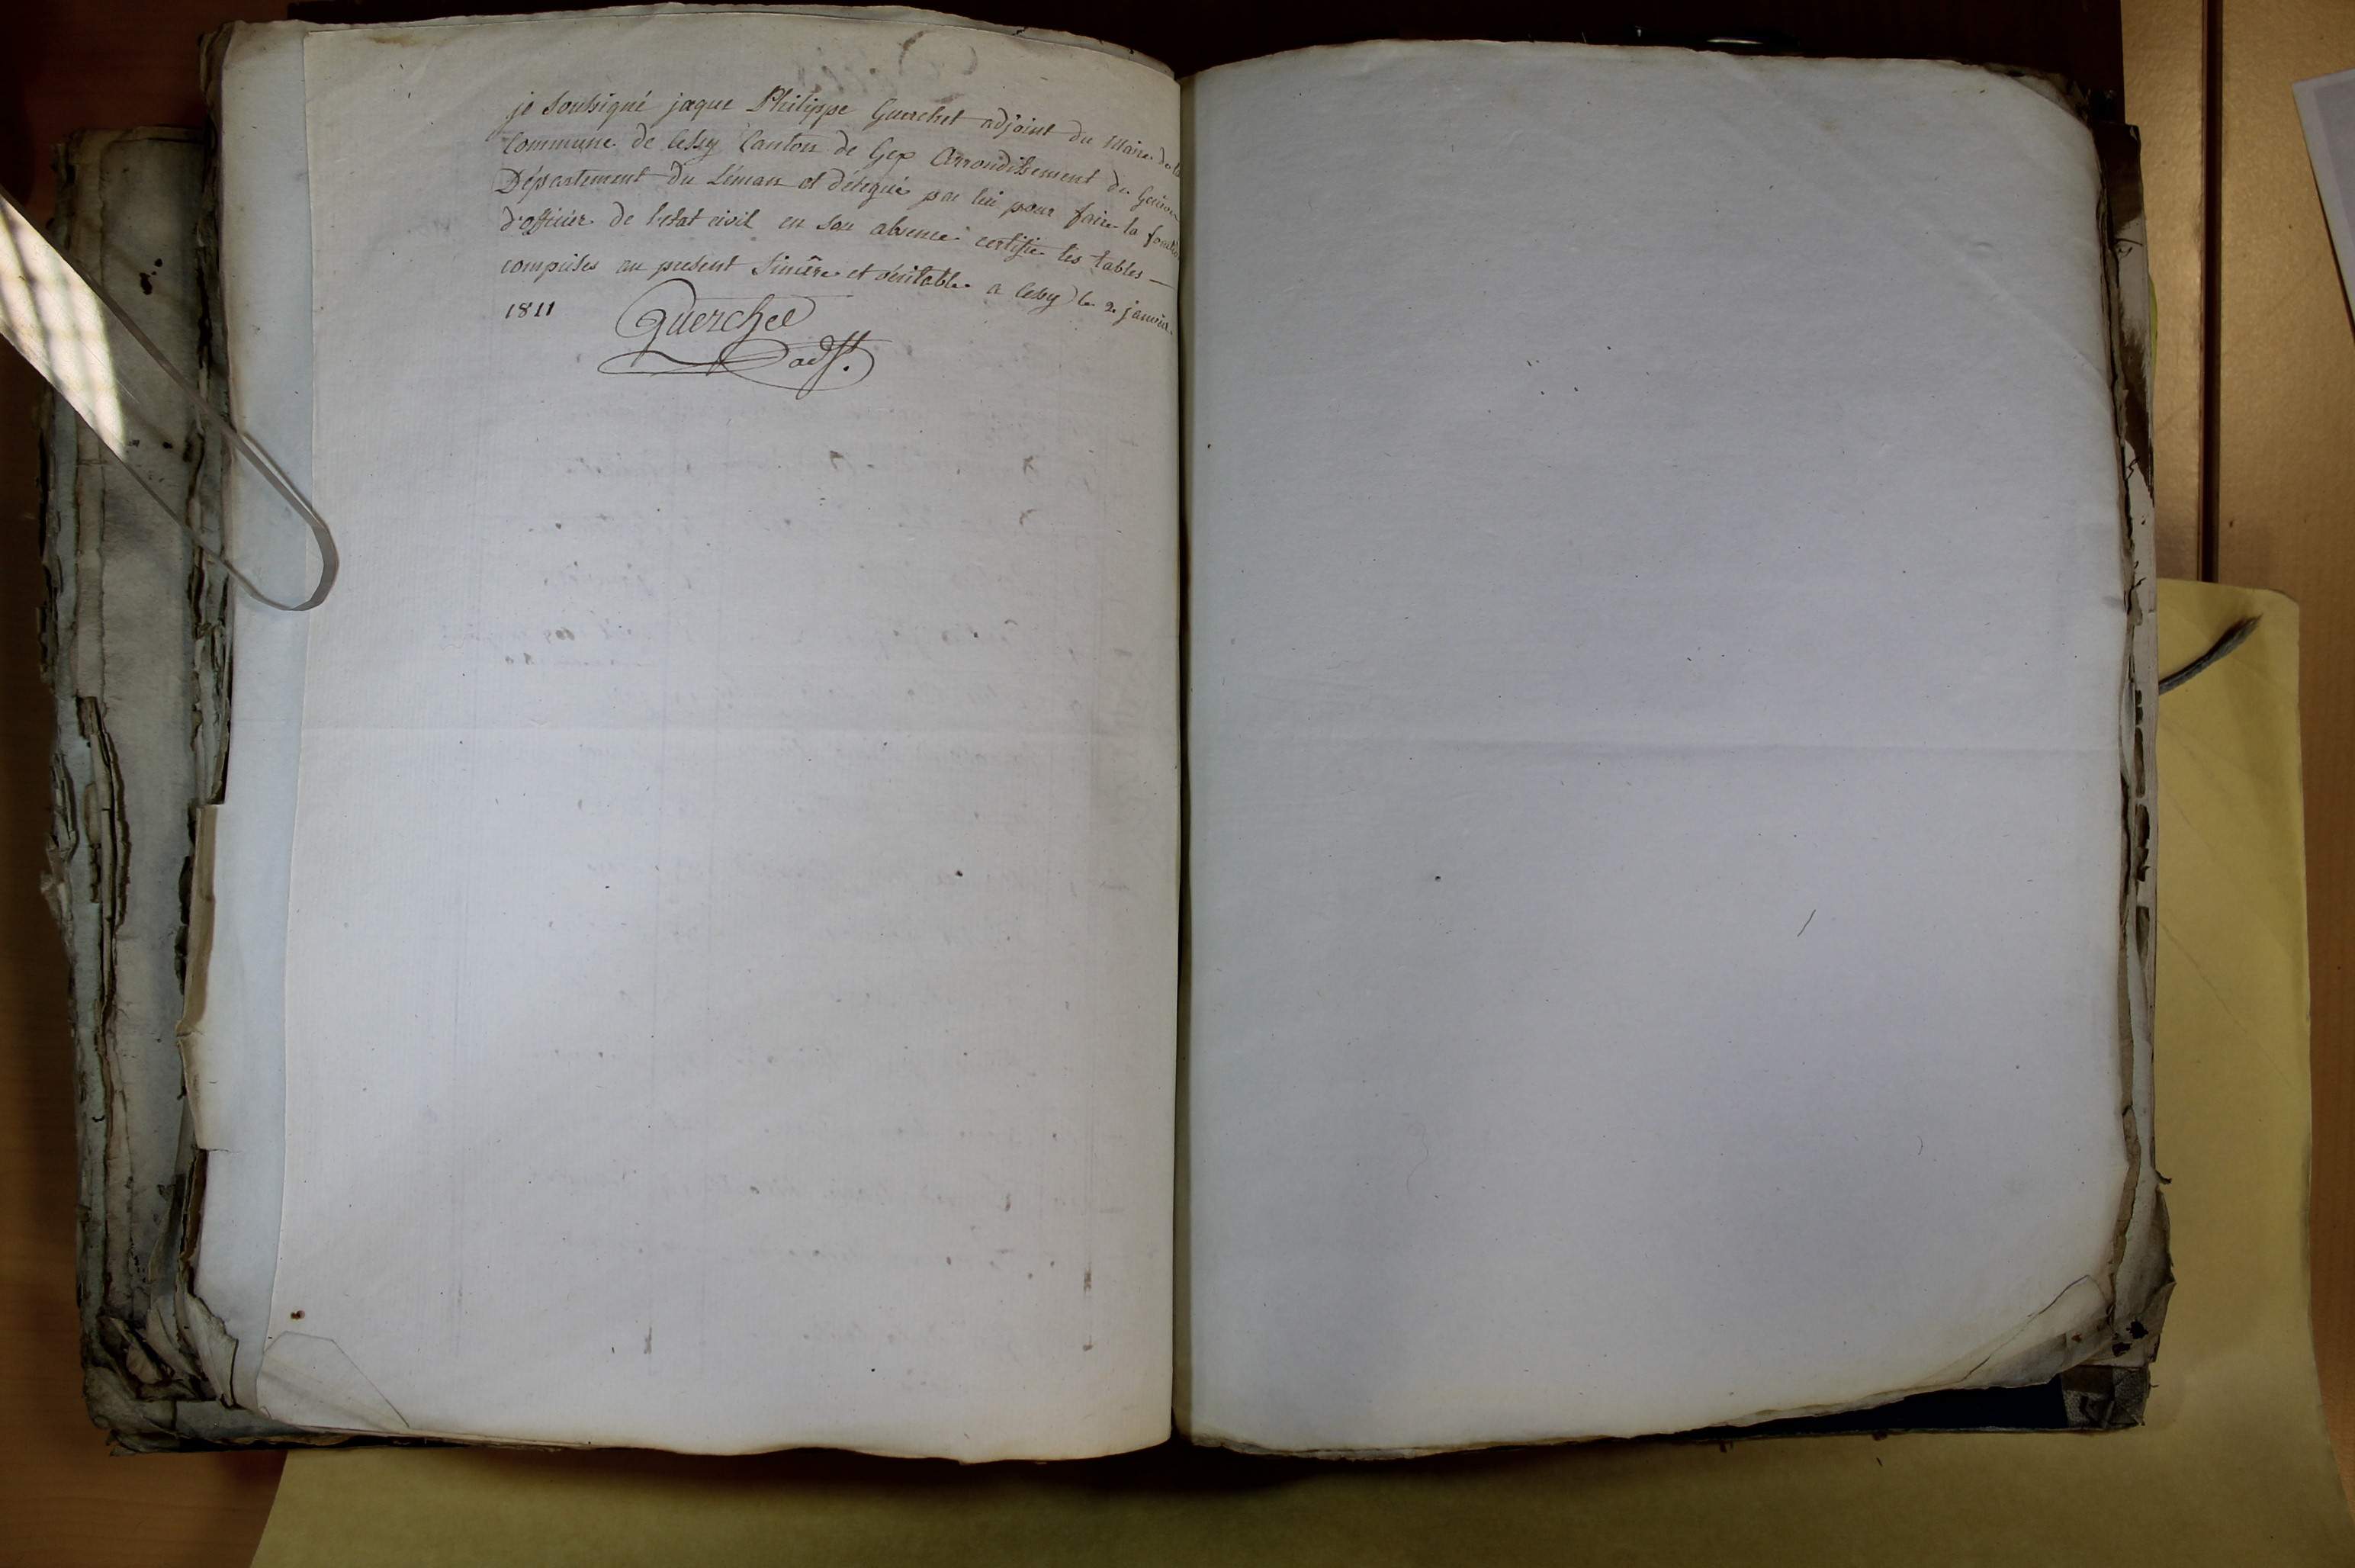 je soussigné jaque Philippe Guerchet adjoint du Maire de la
Commune de Cessy Canton de Gex Arrondissement de Genève
Département du Léman et délégué par lui pour faire la fonction
d'officier de l'etat civil en son absence certifie les tables —
comprises au present Sincère et véritable a Cessy le 2 janvier
1811
Guerchet
adjt.